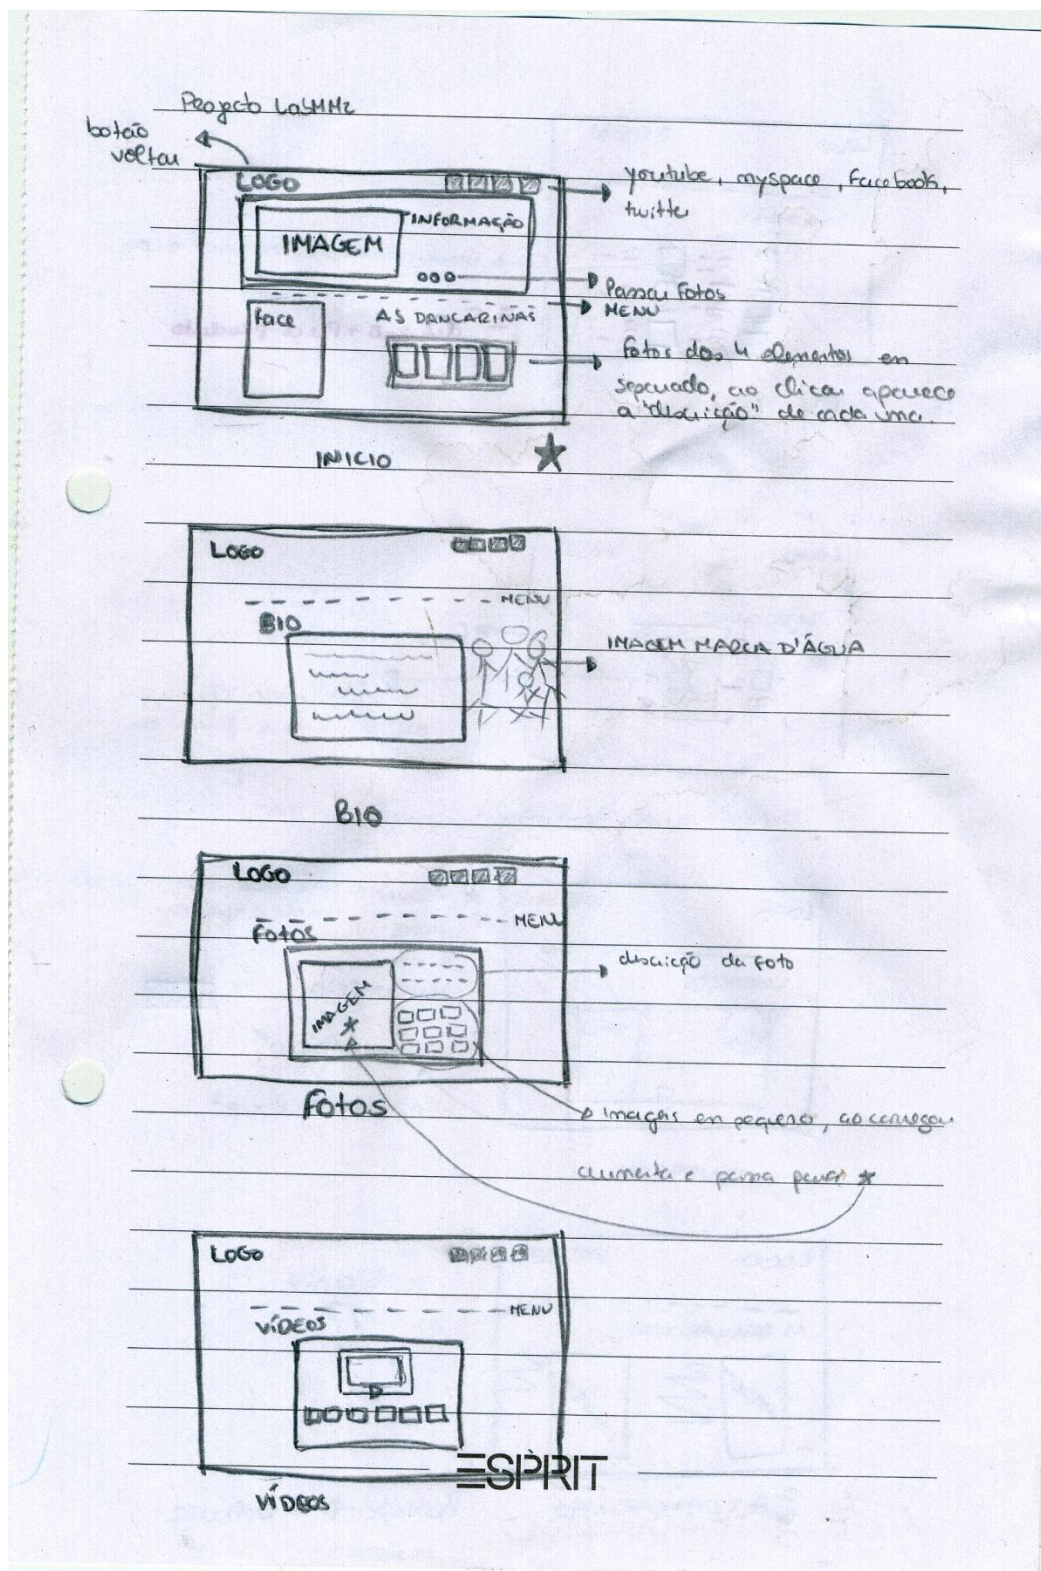 Projecto LaSMMz
botão
voltar
LOGO
youtube, myspace, facebook,
twitter
INFORMAÇÃO
IMAGEM
Passar Fotos
MENU
face
AS DANCARINAS
fotos dos 4 elementos en
separado, ao clicar aparece
a "discrição" de cada uma.
INICIO
LOGO
MENU
BIO
IMAGEM MARCA D'ÁGUA
BIO
LOGO
MENU
Fotos
discrição da foto
IMAGEM
Fotos
Imagens en pequeno, ao carregar
aumenta e passa para *
LOGO
MENU
VÍDEOS
ESPRIT
VÍDEOS